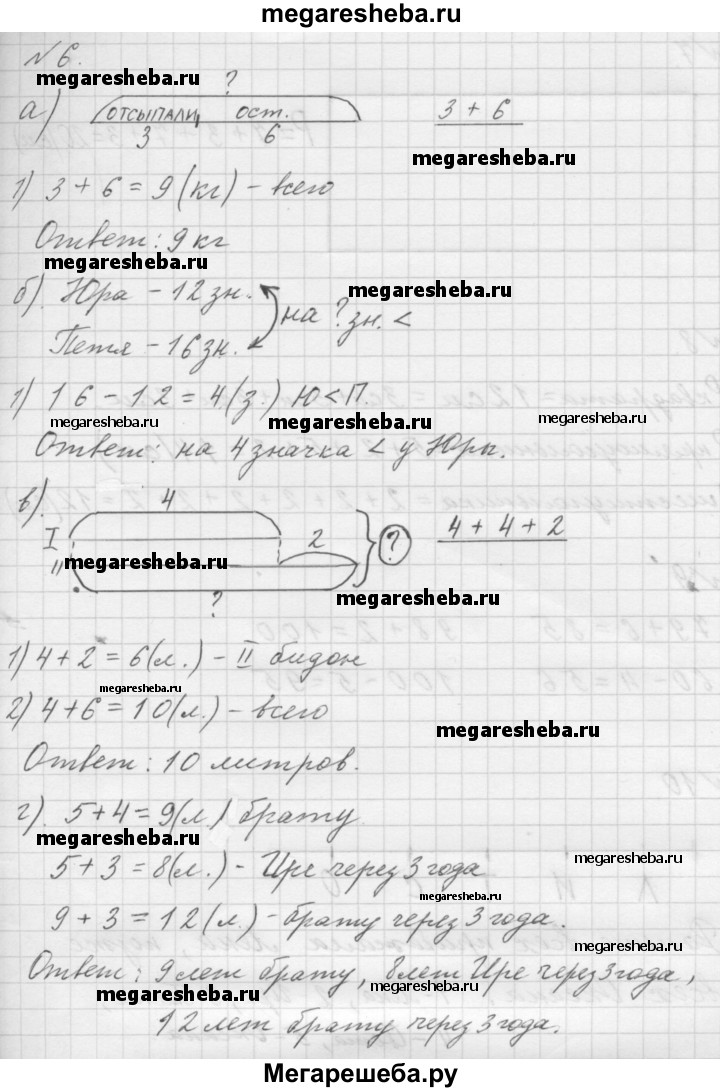 megaresheba.ru
№ 6.
megaresheba.ru
?
а) отсыпали ост. 3 + 6
3 6
megaresheba.ru
1) 3 + 6 = 9 (кг) - всего
Ответ: 9 кг
megaresheba.ru
б). Юра - 12 зн.
megaresheba.ru
на ? зн. <
Петя - 16 зн.
1) 16 - 12 = 4 (з.) Ю < П.
megaresheba.ru megaresheba.ru megaresheba.ru
Ответ: на 4 значка < у Юры.
в). 4
I 2 ? 4 + 4 + 2
megaresheba.ru
II
? megaresheba.ru
1) 4 + 2 = 6 (л.) - II бидон
megaresheba.ru
2) 4 + 6 = 10 (л.) - всего
megaresheba.ru
Ответ: 10 литров.
г). 5 + 4 = 9 (л) брату
megaresheba.ru
5 + 3 = 8 (л.) - Ире через 3 года
megaresheba.ru
9 + 3 = 12 (л.) - брату через 3 года.
megaresheba.ru
Ответ: 9 лет брату, 8 лет Ире через 3 года,
megaresheba.ru megaresheba.ru
12 лет брату через 3 года.
Мегарешеба.ру